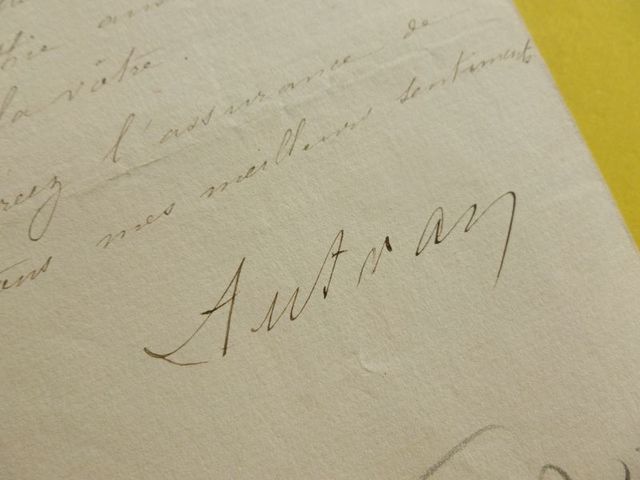 la vôtre.
l'assurance de
mes meilleurs sentiments
Autran